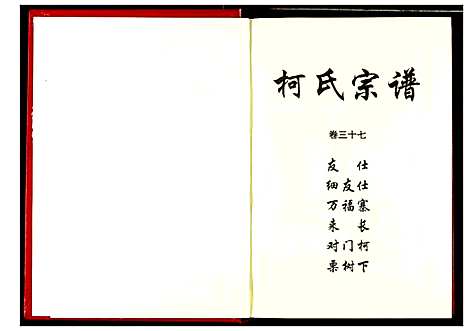 柯氏宗谱
卷三十七
友 仕
细友仕
万福寨
来 长
对门柯
栗树下